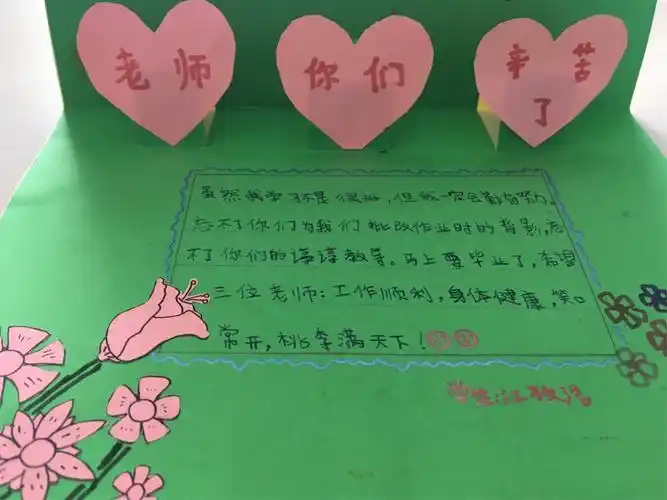 老师
你们
辛苦
了
虽然我学习不是很好，但我一定会勤奋努力。
忘不了你们为我们批改作业时的背影，忘
不了你们的谆谆教导。马上要毕业了，希望
三位老师：工作顺利，身体健康，笑口
常开，桃李满天下！
学生：江